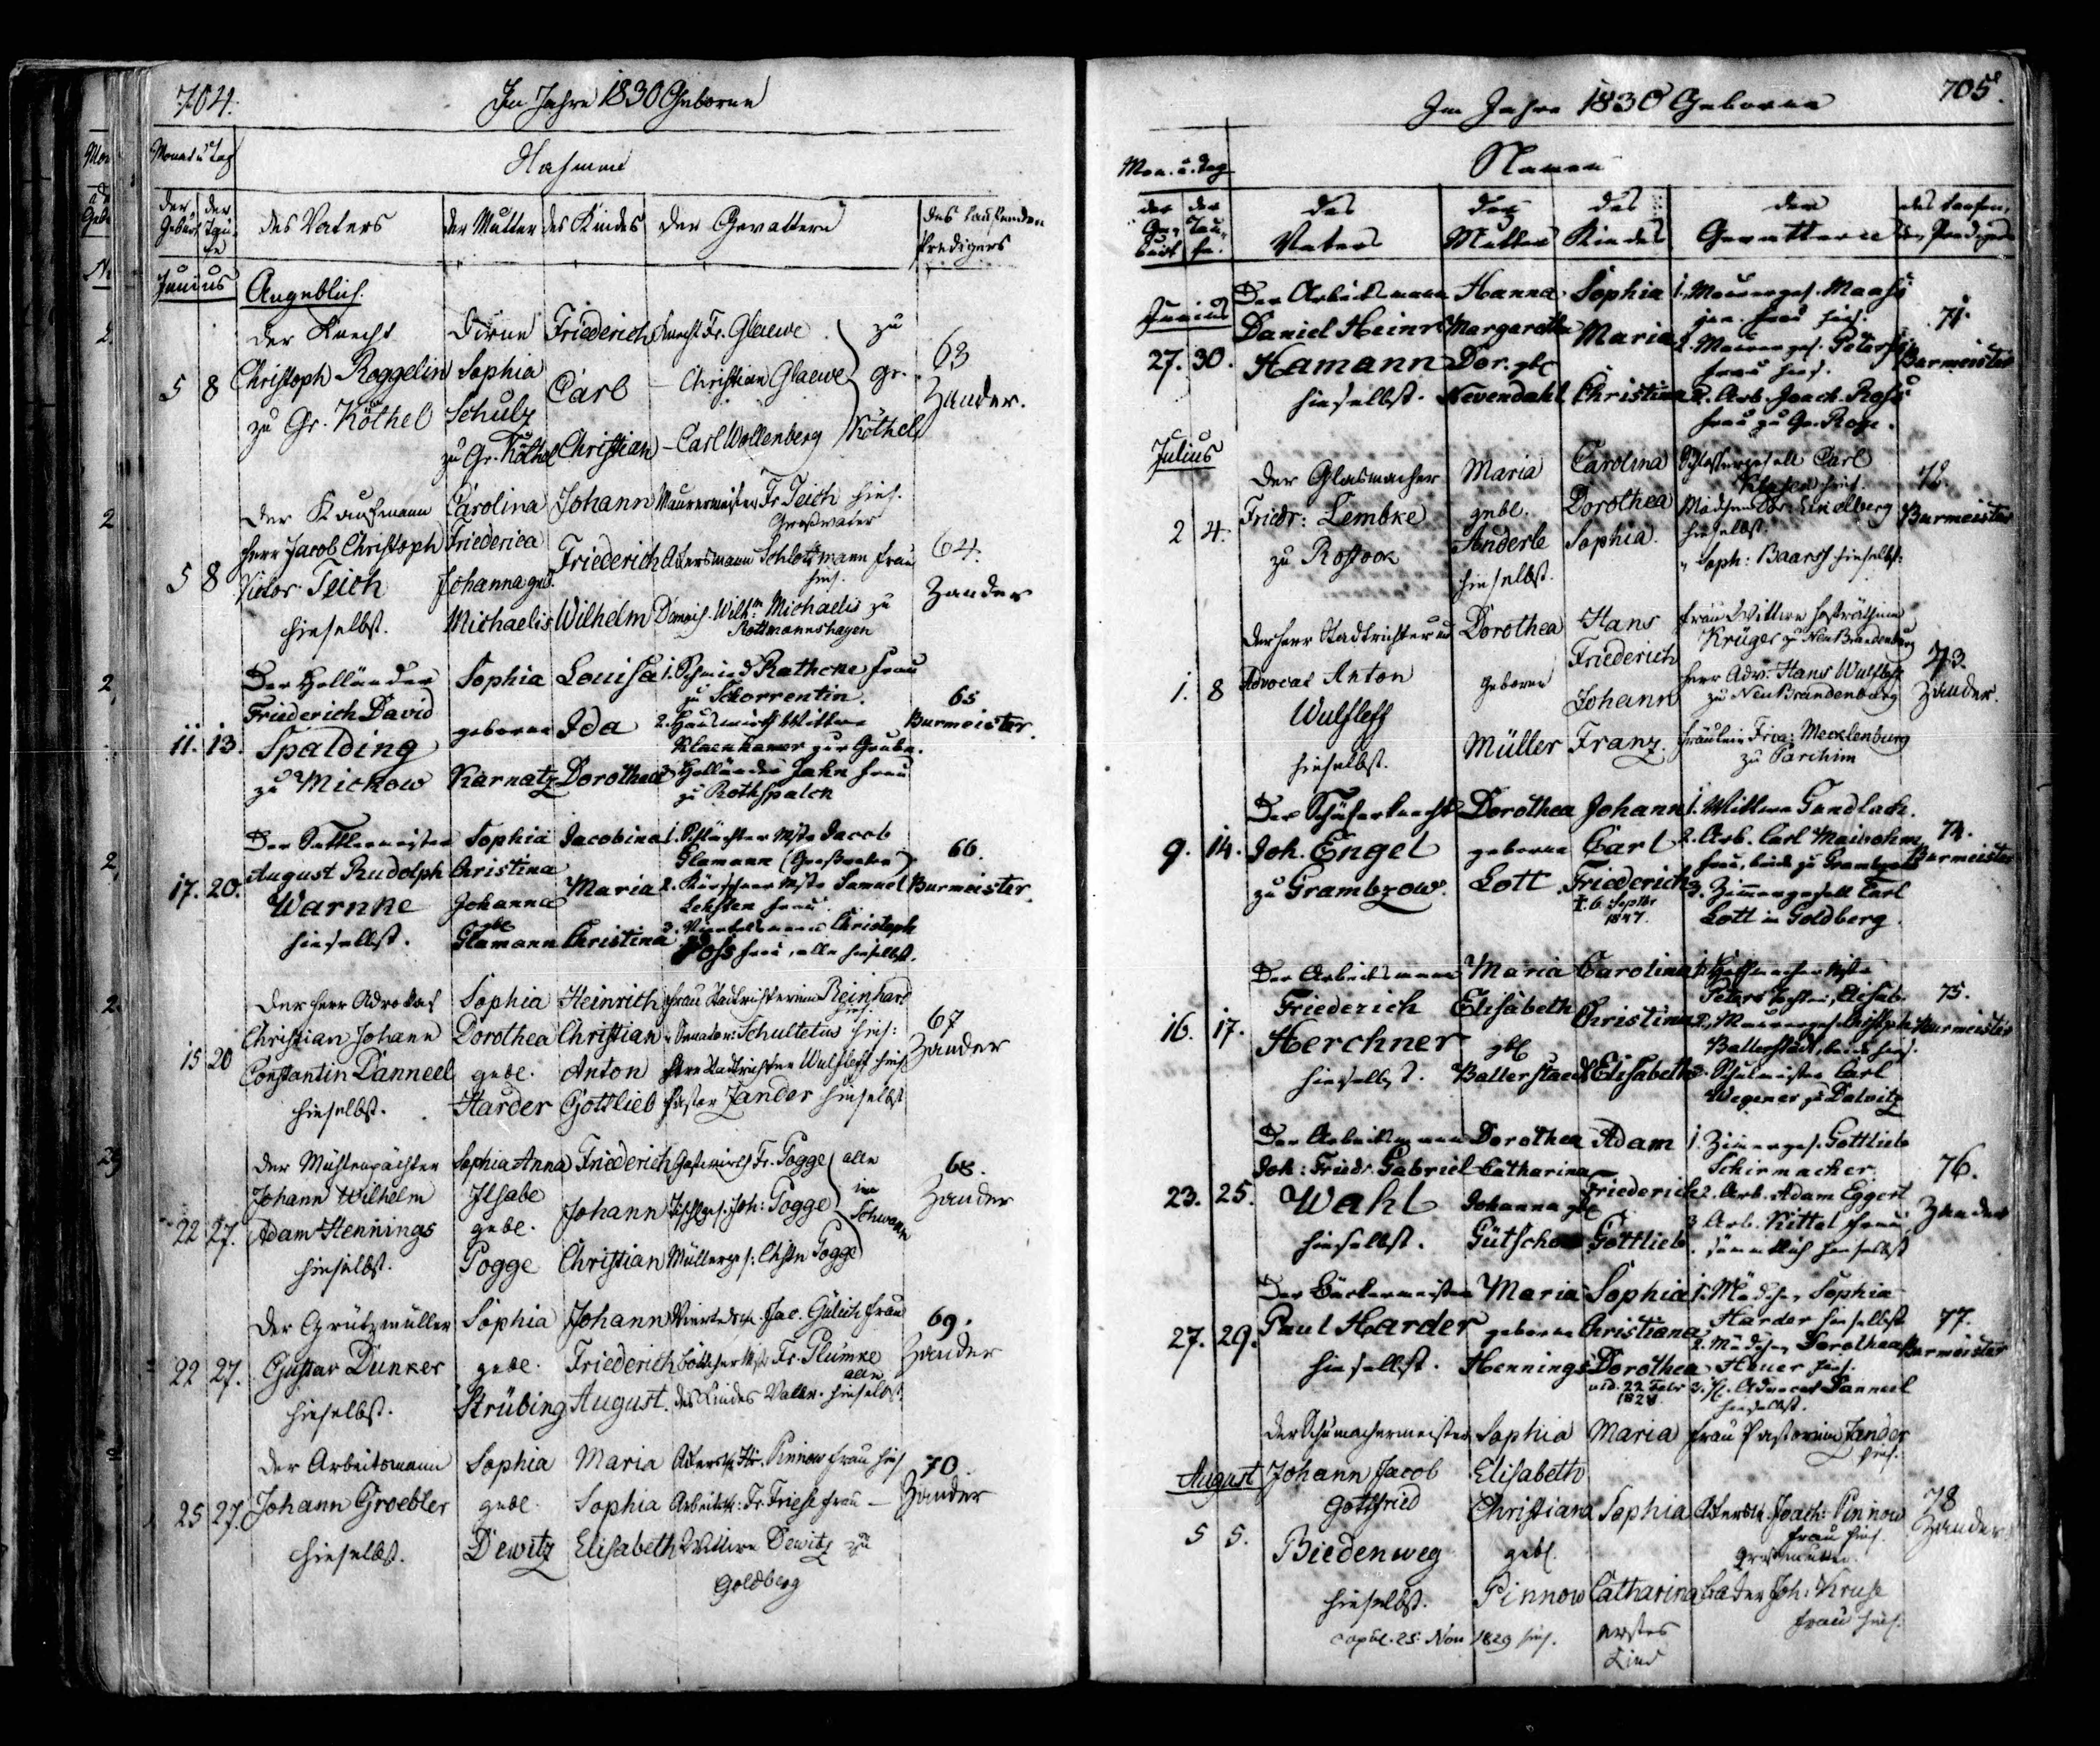 704.
Im Jahre 1830 Geborne
Monat u Tag
Nahmen
der Geburt
der Taufe
des Vaters
der Mutter
des Kindes
der Gevattern
des taufenden Predigers
Junius
Angeblich.
5 8
der Knecht
Christoph Roggelin
zu Gr. Köthel
Dirne
Sophia
Schulz
zu Gr. Köthel
Friederich
Carl
Christian
Knecht Fr. Glaewe
— Christian Glaewe
— Carl Wollenberg
zu
gr.
Köthel
63
Zander.
5 8
der Kaufmann
Herr Jacob Christoph
Victor Teich
hieselbst.
Carolina
Friederica
Johanna geb.
Michaelis
Johann
Friederich
Wilhelm
Maurermeister Fr. Teich hies.
Großvater
Ackersmann Schlottmann Frau
hies.
Wilhm Michaelis zu
Rottmannshagen
64.
Zander
11. 13.
Der Holländer
Friederich David
Spalding
zu Mickow
Sophia
geborne
Karnatz
Louisa
Ida
Dorothea
1. Schmied Rathcke Frau
zu Schorrentin.
2. Hauswirth Wittwe
Klaenhamer zur Grube.
3. Holländer Jahn Frau
zu Rothspalck
65
Burmeister.
17. 20.
Der Sattlermeister
August Rudolph
Warnke
hieselbst.
Sophia
Christina
Johanna
gbe
Glamann
Jacobina
Maria
Christina
1. Schlächter Mstr Jacob
Glamann (Großvater)
2. Kürschner Mstr Samuel
Lehsten Frau
3. Viertelsmann Christoph
Voss Frau, alle hieselbst.
66.
Burmeister.
15 20
Der Herr Advokat
Christian Johann
Constantin Danneel
hieselbst.
Sophia
Dorothea
gebe.
Harder
Heinrich
Christian
Anton
Gottlieb
Frau Stadtrichterinn Reinhard
hies.
" Senator: Schultetus hies:
Herr Stadtrichter Wulfleff hies
Pastor Zander hieselbst
67
Zander
22 27.
Der Mühlenpächter
Johann Wilhelm
Adam Hennings
hieselbst.
Sophia Anna
Ilsabe
gebe.
Pogge
Friederich
Johann
Christian
Gastwirth Fr. Pogge
Tischlges. Joh: Pogge
Müllerges: Chstn Pogge
alle
in
Schwaan
68.
Zander
22 27.
Der Grützmüller
Gustav Dunker
hieselbst.
Sophia
gebe.
Strübing
Johann
Friederich
August.
Viertelsm. Jac. Gülich Frau
Böttcher Mstr Fr. Plumke
alle
des Kindes Vater. hieselbst
69.
Zander
25 27.
Der Arbeitsmann
Johann Groebler
hieselbst.
Sophia
gebe.
Dewitz
Maria
Sophia
Elisabeth
Ackersm. Pinnow Frau hies
Arbeitsm: Fr. Friese Frau —
Wittwe Dewitz zu
Goldberg
70.
Zander
705.
Im Jahre 1830 Geborne
Mon. u. Tag
Namen
der Geburt
der Taufe.
des Vaters
der Mutter
des Kindes
der Gevattern
des taufenden Predigers
Junius
27. 30.
Der Arbeitsmann
Daniel Heinr
Hamann
hieselbst.
Hanna
Margaretha
Dor. gbe
Nevendahl
Sophia
Maria
Christina
1. Maurerges. Maass
jun. Frau hies.
2. Maurerges. Peters
Frau hies.
3. Arb. Joach. Ross
Frau zu Gr. Roge.
71.
Burmeister
Julius
2 4.
Der Glasmacher
Friedr: Lembke
zu Rostock
Maria
gebe.
Anderle
hieselbst.
Carolina
Dorothea
Sophia.
Schlossergesell Carl
hies.
Mädchen Dor: Eickelberg
hieselbst
" Soph: Baarss hieselbst:
72.
Burmeister
1. 8
Der Herr Stadtrichter und
Advocat Anton
Wulfleff
hieselbst.
Dorothea
geborne
Müller
Hans
Friederich
Johann
Franz.
Frau Wittwe Hofräthinn
Krüger zu Neu Brandenburg
Herr Adv: Hans Wulfleff
zu Neu Brandenburg
Fräulein Frca: Mecklenburg
zu Parchim
73.
Zander.
9. 14.
Der Schäferknecht
Joh. Engel
zu Grambzow.
Dorothea
geborne
Lott
Johann
Carl
Friederich
†. 6 Septbr
1847.
1. Wittwe Gundlach.
2. Arb. Carl Maibohm
Frau, beide zu Grambzow
3. Zimmergesell Carl
Lott in Goldberg.
74.
Burmeister
16. 17.
Der Arbeitsmann
Friederich
Kerchner
hieselbst.
Maria
Elisabeth
gbe
Ballerstaedt
Carolina
Christina
Elisabeth
1. Mstr
Peters Tochter, Elisab.
2. Maurerges. Christoph
Ballerstädt, beide hies.
3. Schulmeister Carl
Wegener zu Dalwitz
75.
Burmeister
23. 25.
Der Arbeitsmann
Joh: Friedr. Gabriel
Wahl
hieselbst.
Dorothea
Catharina
Johanna gbe
Gütschow
Adam
Friederich
Gottlieb
1. Zimerges. Gottlieb
Schirmacher
2. Arb. Adam Eggert
3. Arb. Kittel Frau
sämmtlich hieselbst
76.
Zander
27. 29.
Der Bäckermeister
Paul Harder
hieselbst.
Maria
geborne
Hennings
Sophia
Christiana
Dorothea
22 Febr
1. Mädchen Sophia
Harder hieselbst
2. Mädchen Dorothea
Heuer hies.
3. H. Advocat Danneel
hieselbst.
77.
Burmeister
August
5 5.
Der Schumachermeister
Johann Jacob
Gottfried
Biedenweg
hieselbst.
copul. 25. Nov 1829 hies.
Sophia
Elisabeth
Christiana
gebe.
Pinnow
Maria
Sophia
Catharina
erstes
Kind
Frau Pastorinn Zander
hies.
Ackersm. Joach: Pinnow
Frau hies.
Großmutter
Joh: Kruse
Frau hies.
78
Zander